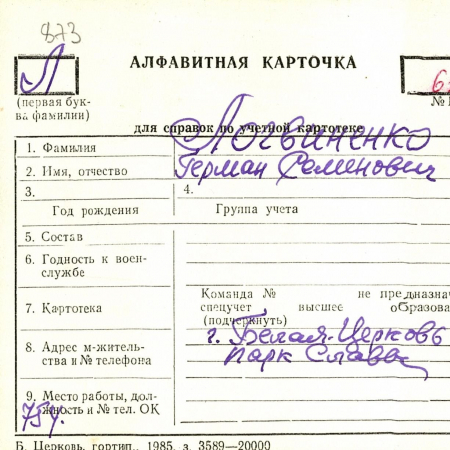 873
Л
АЛФАВИТНАЯ КАРТОЧКА
(первая бук-
ва фамилии)
для справок по учетной картотеке
1. Фамилия Логвиненко
2. Имя, отчество Герман Семенович
3.
Год рождения
4.
Группа учета
5. Состав
6. Годность к воен-
службе
7. Картотека
Команда № не предназна
спецучет высшее образова
(подчеркнуть)
8. Адрес м-житель-
ства и № телефона
г. Белая-Церковь
парк Славы
9. Место работы, дол-
жность и № тел. ОК
754.
Б. Церковь, гортип., 1985, з. 3589—20000